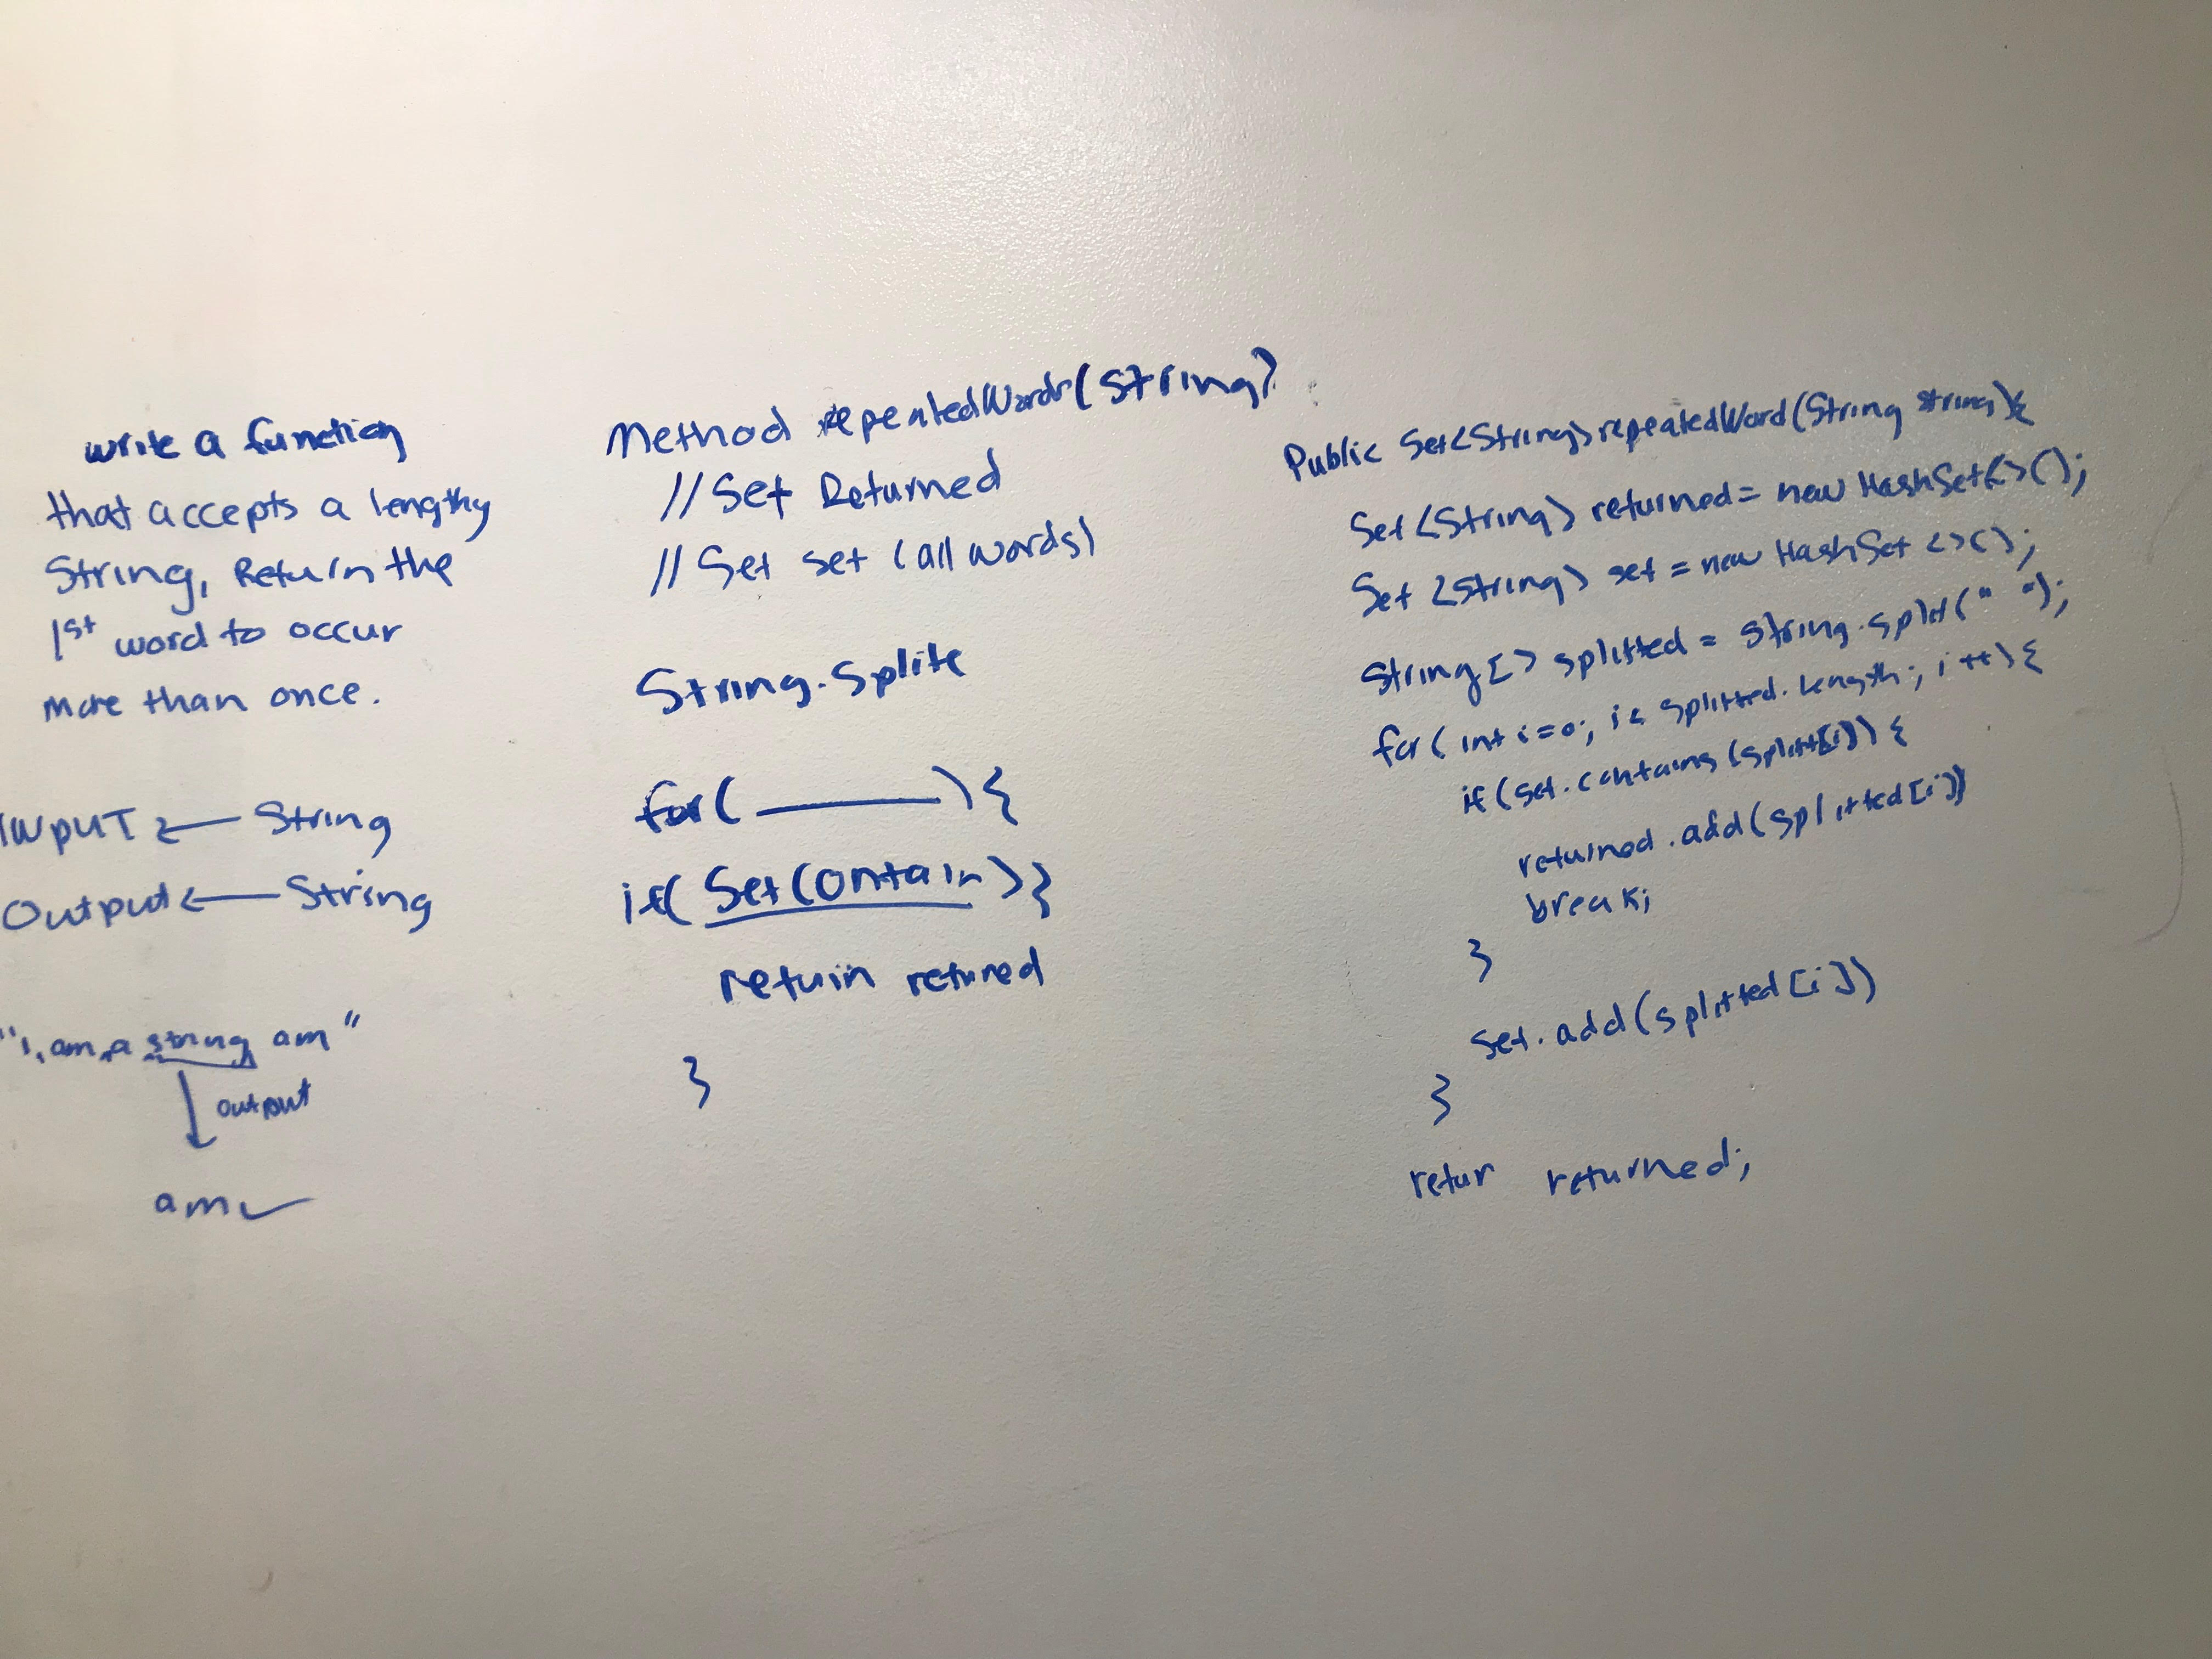 write a function
that accepts a lengthy
String, Return the
1st word to occur
more than once.
INPUT ← String
Output ← String
"i am a string am"
output
am
Method repeatedWords(String)
// Set Returned
// Set set (all words)
String.splite
for( ——— ) {
if( Set Contain ) }
return retuned
}
Public Set<String> repeatedWord(String string){
Set <String> returned = new HashSet<>();
Set <String> set = new HashSet <>();
String[] splitted = string.split(" ");
for( int i=0; i< splitted.length; i++) {
if (set.contains (splitt[i])) {
returned.add(splitted[i])
break;
}
set.add(splitted[i])
}
retur returned;